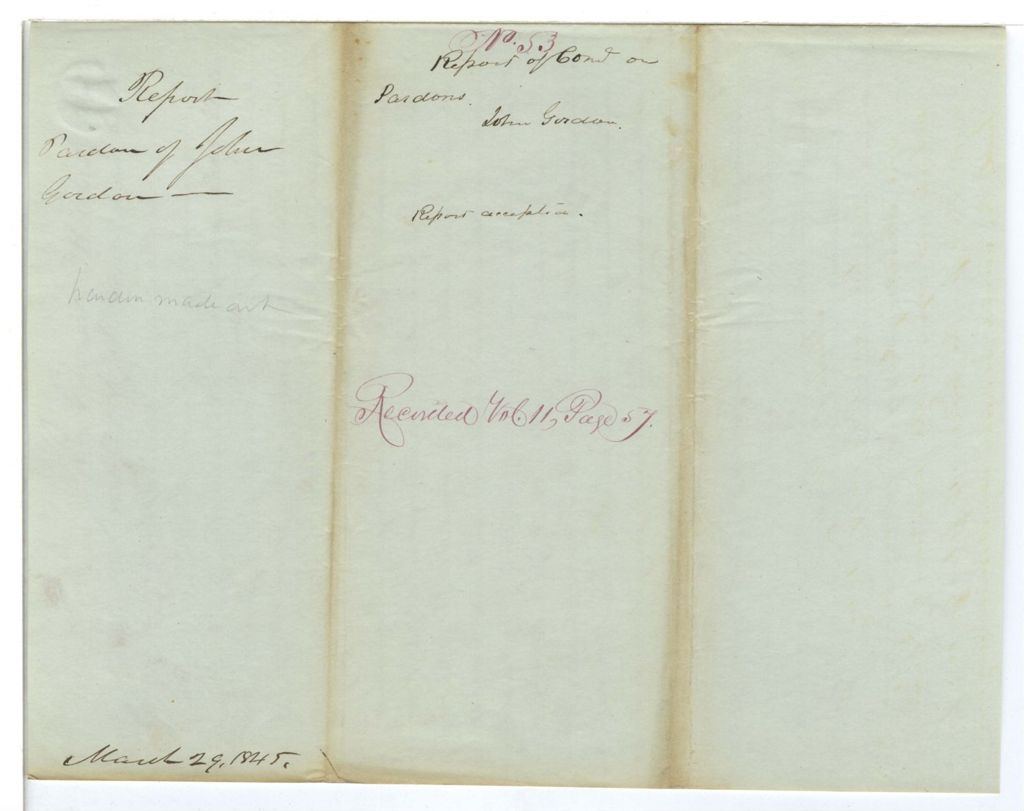 Report
Pardon of John
Gordon —
Pardon made out
March 29, 1845.
No. 53
Report of Comt on
Pardons.
John Gordon.
Report acception.
Recorded Vol. 11, Page 57.